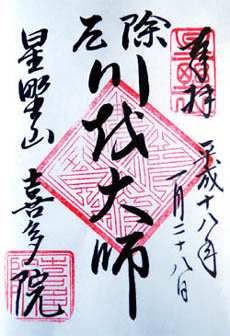 奉拝
平成十八年
一月二十八日
厄除
川越大師
星野山
喜多院